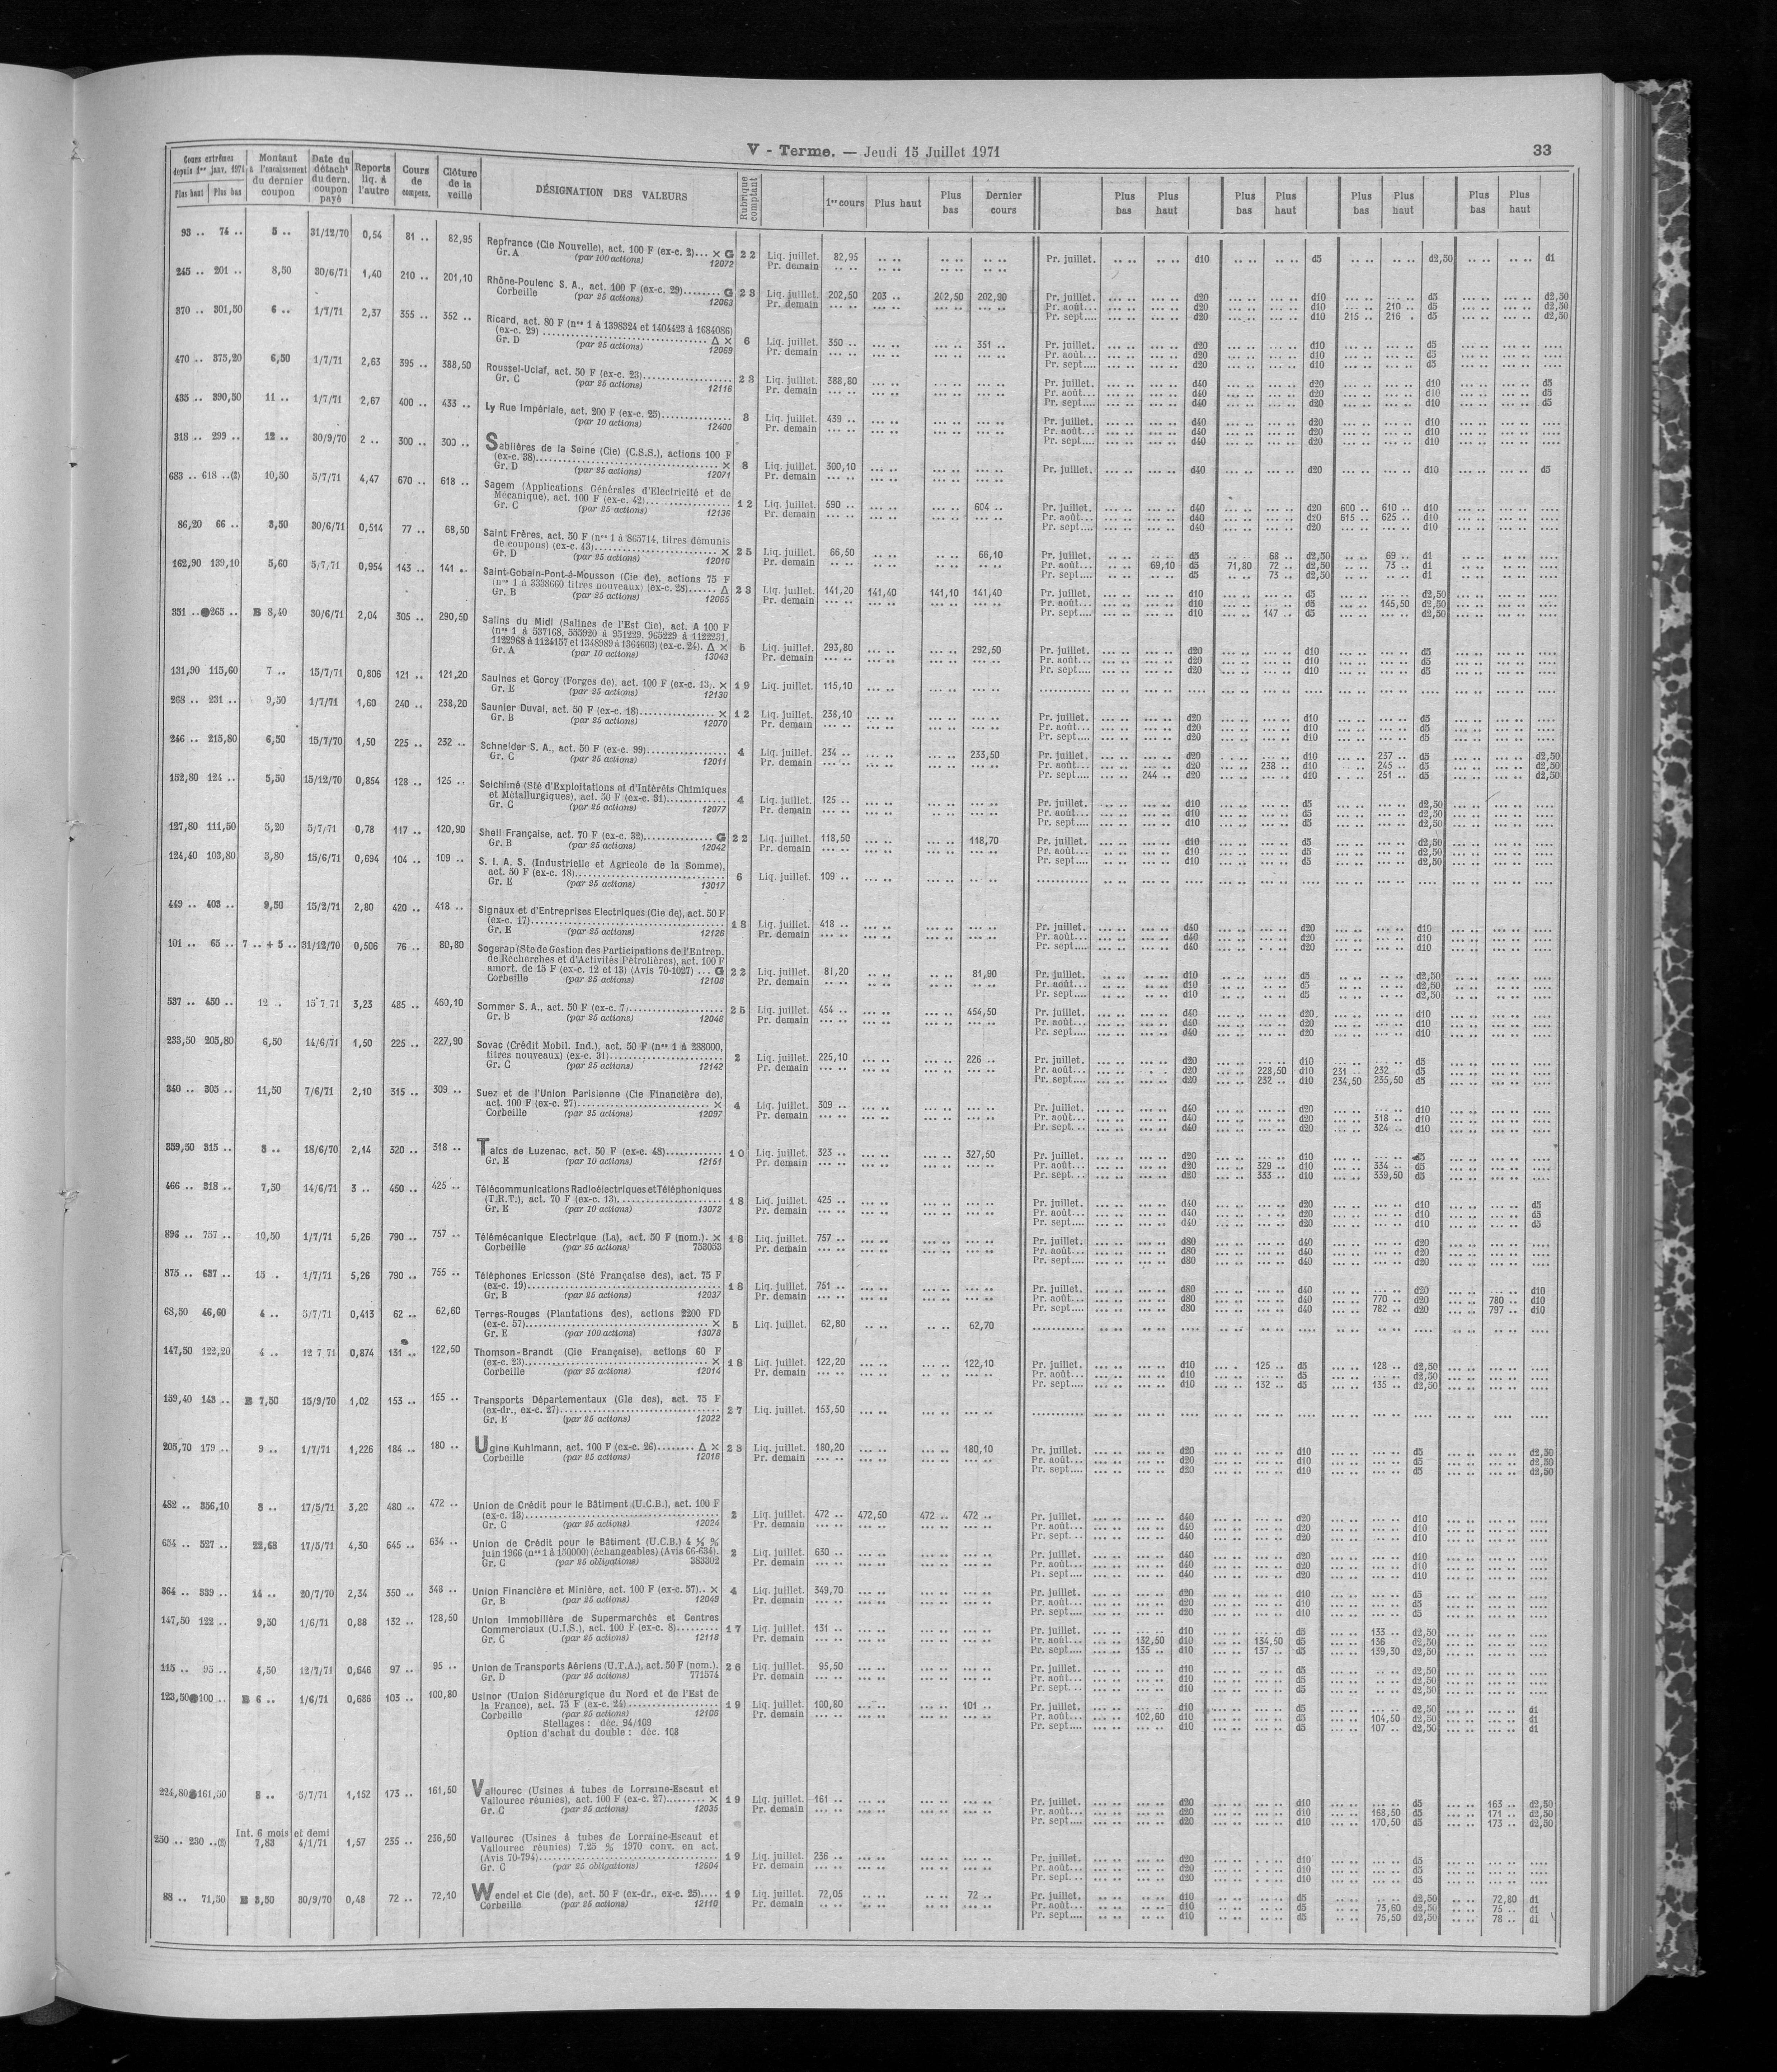 V - Terme. — Jeudi 15 Juillet 1971
33
Cours extrêmes depuis 1er janv. 1971 Plus haut Plus bas
Montant à l'encaissement du dernier coupon
Date du détacht du dern. coupon payé
Reports liq. à l'autre
Cours de compens.
Clôture de la veille
DÉSIGNATION DES VALEURS
Rubrique comptant
1er cours Plus haut Plus bas Dernier cours
Plus bas Plus haut Plus bas Plus haut Plus bas Plus haut Plus bas Plus haut
93 .. 74 .. 5 .. 31/12/70 0,54 81 .. 82,95 Repfrance (Cie Nouvelle), act. 100 F (ex-c. 2)... × G 22 Liq. juillet. 82,95 Pr. juillet. d10 d5 d2,50 d1
Gr. A (par 100 actions) 12072 Pr. demain
245 .. 201 .. 8,50 30/6/71 1,40 210 .. 201,10 Rhône-Poulenc S. A., act. 100 F (ex-c. 29)........ G 23 Liq. juillet. 202,50 203 .. 202,50 202,90 Pr. juillet. d20 d10 d5 d2,50
Corbeille (par 25 actions) 12063 Pr. demain Pr. août... d20 d10 210 .. d5 d2,50
Pr. sept.... d20 d10 215 .. 216 . d5 d2,50
370 .. 301,50 6 .. 1/7/71 2,37 355 .. 352 .. Ricard, act. 80 F (nos 1 à 1398324 et 1404423 à 1684086)
(ex-c. 29) ........ Δ × 6 Liq. juillet. 350 .. 351 .. Pr. juillet. d20 d10 d5
Gr. D (par 25 actions) 12069 Pr. demain Pr. août... d20 d10 d5
Pr. sept.... d20 d10 d5
470 .. 375,20 6,50 1/7/71 2,63 395 .. 388,50 Roussel-Uclaf, act. 50 F (ex-c. 23)........ 23 Liq. juillet. 388,80 Pr. juillet. d40 d20 d10 d5
Gr. C (par 25 actions) 12116 Pr. demain Pr. août... d40 d20 d10 d5
Pr. sept.... d40 d20 d10 d5
435 .. 390,50 11 .. 1/7/71 2,67 400 .. 433 .. Ly Rue Impériale, act. 200 F (ex-c. 25)........ 3 Liq. juillet. 439 .. Pr. juillet. d40 d20 d10
(par 10 actions) 12400 Pr. demain Pr. août... d40 d20 d10
Pr. sept.... d40 d20 d10
318 .. 299 .. 12 .. 30/9/70 2 .. 300 .. 300 .. Sablières de la Seine (Cie) (C.S.S.), actions 100 F
(ex-c. 38)........ × 8 Liq. juillet. 300,10 Pr. juillet. d40 d20 d10 d5
Gr. D (par 25 actions) 12071 Pr. demain
683 .. 618 ..(2) 10,50 5/7/71 4,47 670 .. 618 .. Sagem (Applications Générales d'Electricité et de
Mécanique), act. 100 F (ex-c. 42)........ 12 Liq. juillet. 590 .. 604 .. Pr. juillet. d40 d20 600 .. 610 .. d10
Gr. C (par 25 actions) 12136 Pr. demain Pr. août... d40 d20 615 .. 625 .. d10
Pr. sept.... d40 d20 d10
86,20 66 .. 3,50 30/6/71 0,514 77 .. 68,50 Saint Frères, act. 50 F (nos 1 à 865714, titres démunis
de coupons) (ex-c. 43)........ × 25 Liq. juillet. 66,50 66,10 Pr. juillet. d5 68 .. d2,50 69 .. d1
Gr. D (par 25 actions) 12010 Pr. demain Pr. août... 69,10 d5 71,80 72 .. d2,50 73 .. d1
Pr. sept.... d5 73 .. d2,50 d1
162,90 139,10 5,60 5/7/71 0,954 143 .. 141 .. Saint-Gobain-Pont-à-Mousson (Cie de), actions 75 F
(nos 1 à 3338660 titres nouveaux) (ex-c. 28)...... Δ 23 Liq. juillet. 141,20 141,40 141,10 141,40 Pr. juillet. d10 d5 d2,50
Gr. B (par 25 actions) 12065 Pr. demain Pr. août... d10 d5 145,50 d2,50
Pr. sept.... d10 147 .. d5 d2,50
351 .. 265 .. B 8,40 30/6/71 2,04 305 .. 290,50 Salins du Midi (Salines de l'Est Cie), act. A 100 F
(nos 1 à 537168, 553920 à 951229, 965229 à 1122231,
1122968 à 1124157 et 1348989 à 1364603) (ex-c. 24). Δ × 5 Liq. juillet. 293,80 292,50 Pr. juillet. d20 d10 d5
Gr. A (par 10 actions) 13043 Pr. demain Pr. août... d20 d10 d5
Pr. sept.... d20 d10 d5
131,90 115,60 7 .. 15/7/71 0,806 121 .. 121,20 Saulnes et Gorcy (Forges de), act. 100 F (ex-c. 13). × 19 Liq. juillet. 115,10
Gr. E (par 25 actions) 12130
268 .. 231 .. 9,50 1/7/71 1,60 240 .. 238,20 Saunier Duval, act. 50 F (ex-c. 18)........ × 12 Liq. juillet. 238,10 Pr. juillet. d20 d10 d5
Gr. B (par 25 actions) 12070 Pr. demain Pr. août... d20 d10 d5
Pr. sept.... d20 d10 d5
246 .. 215,80 6,50 15/7/70 1,50 225 .. 232 .. Schneider S. A., act. 50 F (ex-c. 99)........ 4 Liq. juillet. 234 .. 233,50 Pr. juillet. d20 d10 237 .. d5 d2,50
Gr. C (par 25 actions) 12011 Pr. demain Pr. août... d20 238 .. d10 245 .. d5 d2,50
Pr. sept.... 244 .. d20 d10 251 .. d5 d2,50
152,80 124 .. 5,50 15/12/70 0,854 128 .. 125 .. Seichimé (Sté d'Exploitations et d'Intérêts Chimiques
et Métallurgiques), act. 50 F (ex-c. 31)........ 4 Liq. juillet. 125 .. Pr. juillet. d10 d5 d2,50
Gr. C (par 25 actions) 12077 Pr. demain Pr. août... d10 d5 d2,50
Pr. sept.... d10 d5 d2,50
127,80 111,50 5,20 5/7/71 0,78 117 .. 120,90 Shell Française, act. 70 F (ex-c. 32)........ G 22 Liq. juillet. 118,50 118,70 Pr. juillet. d10 d5 d2,50
Gr. B (par 25 actions) 12042 Pr. demain Pr. août... d10 d5 d2,50
Pr. sept.... d10 d5 d2,50
124,40 103,80 3,80 15/6/71 0,694 104 .. 109 .. S. I. A. S. (Industrielle et Agricole de la Somme),
act. 50 F (ex-c. 18)........ 6 Liq. juillet. 109 ..
Gr. E (par 25 actions) 13017
449 .. 403 .. 9,50 15/2/71 2,80 420 .. 418 .. Signaux et d'Entreprises Electriques (Cie de), act. 50 F
(ex-c. 17)........ 18 Liq. juillet. 418 .. Pr. juillet. d40 d20 d10
Gr. E (par 25 actions) 12126 Pr. demain Pr. août... d40 d20 d10
Pr. sept.... d40 d20 d10
101 .. 65 .. 7 .. + 5 .. 31/12/70 0,506 76 .. 80,80 Sogerap (Sté de Gestion des Participations de l'Entrep.
de Recherches et d'Activités Pétrolières), act. 100 F
amort. de 15 F (ex-c. 12 et 13) (Avis 70-1027) ... G 22 Liq. juillet. 81,20 81,90 Pr. juillet. d10 d5 d2,50
Corbeille (par 25 actions) 12108 Pr. demain Pr. août... d10 d5 d2,50
Pr. sept.... d10 d5 d2,50
537 .. 450 .. 12 .. 15 7 71 3,23 485 .. 460,10 Sommer S. A., act. 50 F (ex-c. 7)........ 25 Liq. juillet. 454 .. 454,50 Pr. juillet. d40 d20 d10
Gr. B (par 25 actions) 12046 Pr. demain Pr. août... d40 d20 d10
Pr. sept.... d40 d20 d10
233,50 205,80 6,50 14/6/71 1,50 225 .. 227,90 Sovac (Crédit Mobil. Ind.), act. 50 F (nos 1 à 288000,
titres nouveaux) (ex-c. 31)........ 2 Liq. juillet. 225,10 226 .. Pr. juillet. d20 d10 d5
Gr. C (par 25 actions) 12142 Pr. demain Pr. août... d20 228,50 d10 231 .. 232 d5
Pr. sept.... d20 232 .. d10 234,50 235,50 d5
340 .. 305 .. 11,50 7/6/71 2,10 315 .. 309 .. Suez et de l'Union Parisienne (Cie Financière de),
act. 100 F (ex-c. 27)........ × 4 Liq. juillet. 309 .. Pr. juillet. d40 d20 d10
Corbeille (par 25 actions) 12097 Pr. demain Pr. août... d40 d20 318 .. d10
Pr. sept... d40 d20 324 .. d10
359,50 315 .. 8 .. 18/6/70 2,14 320 .. 318 .. Talcs de Luzenac, act. 50 F (ex-c. 48)........ 10 Liq. juillet. 323 .. 327,50 Pr. juillet. d20 d10 d5
Gr. E (par 10 actions) 12151 Pr. demain Pr. août... d20 329 .. d10 334 .. d5
Pr. sept... d20 333 .. d10 339,50 d5
466 .. 318 .. 7,50 14/6/71 3 .. 450 .. 425 .. Télécommunications Radioélectriques et Téléphoniques
(T.R.T.), act. 70 F (ex-c. 13)........ 18 Liq. juillet. 425 .. Pr. juillet. d40 d20 d10 d5
Gr. E (par 10 actions) 13072 Pr. demain Pr. août... d40 d20 d10 d5
Pr. sept.... d40 d20 d10 d5
896 .. 757 .. 10,50 1/7/71 5,26 790 .. 757 .. Télémécanique Electrique (La), act. 50 F (nom.). × 18 Liq. juillet. 757 .. Pr. juillet. d80 d40 d20
Corbeille (par 25 actions) 753053 Pr. demain Pr. août... d80 d40 d20
Pr. sept.... d80 d40 d20
875 .. 637 .. 15 . 1/7/71 5,26 790 .. 755 .. Téléphones Ericsson (Sté Française des), act. 75 F
(ex-c. 19)........ 18 Liq. juillet. 751 .. Pr. juillet. d80 d40 d20 d10
Gr. B (par 25 actions) 12037 Pr. demain Pr. août... d80 d40 770 .. d20 780 .. d10
Pr. sept.... d80 d40 782 .. d20 797 .. d10
68,50 46,60 4 .. 5/7/71 0,413 62 .. 62,60 Terres-Rouges (Plantations des), actions 2200 FD
(ex-c. 57)........ × 5 Liq. juillet. 62,80 62,70
Gr. E (par 100 actions) 13078
147,50 122,20 4 .. 12 7 71 0,874 131 .. 122,50 Thomson-Brandt (Cie Française), actions 60 F
(ex-c. 23)........ × 18 Liq. juillet. 122,20 122,10 Pr. juillet. d10 125 .. d5 128 .. d2,50
Corbeille (par 25 actions) 12014 Pr. demain Pr. août... d10 d5 d2,50
Pr. sept.... d10 132 .. d5 135 .. d2,50
159,40 143 .. B 7,50 15/9/70 1,02 153 .. 155 .. Transports Départementaux (Gle des), act. 75 F
(ex-dr., ex-c. 27)........ 27 Liq. juillet. 153,50
Gr. E (par 25 actions) 12022
205,70 179 .. 9 .. 1/7/71 1,226 184 .. 180 .. Ugine Kuhlmann, act. 100 F (ex-c. 26)........ Δ × 23 Liq. juillet. 180,20 180,10 Pr. juillet. d20 d10 d5 d2,50
Corbeille (par 25 actions) 12016 Pr. demain Pr. août... d20 d10 d5 d2,50
Pr. sept.... d20 d10 d5 d2,50
482 .. 356,10 8 .. 17/5/71 3,20 480 .. 472 .. Union de Crédit pour le Bâtiment (U.C.B.), act. 100 F
(ex-c. 13)........ 2 Liq. juillet. 472 .. 472,50 472 .. 472 .. Pr. juillet. d40 d20 d10
Gr. C (par 25 actions) 12024 Pr. demain Pr. août... d40 d20 d10
Pr. sept... d40 d20 d10
654 .. 527 .. 22,68 17/5/71 4,30 645 .. 634 .. Union de Crédit pour le Bâtiment (U.C.B.) 4 ½ %
juin 1966 (nos 1 à 150000) (échangeables) (Avis 66-634). 2 Liq. juillet. 630 .. Pr. juillet. d40 d20 d10
Gr. C (par 25 obligations) 383302 Pr. demain Pr. août... d40 d20 d10
Pr. sept.... d40 d20 d10
364 .. 339 .. 14 .. 20/7/70 2,34 350 .. 348 .. Union Financière et Minière, act. 100 F (ex-c. 57).. × 4 Liq. juillet. 349,70 Pr. juillet. d20 d10 d5
Gr. B (par 25 actions) 12049 Pr. demain Pr. août... d20 d10 d5
Pr. sept.... d20 d10 d5
147,50 122 .. 9,50 1/6/71 0,88 132 .. 128,50 Union Immobilière de Supermarchés et Centres
Commerciaux (U.I.S.), act. 100 F (ex-c. 8)........ 17 Liq. juillet. 131 .. Pr. juillet. d10 d5 133 .. d2,50
Gr. C (par 25 actions) 12118 Pr. demain Pr. août... 132,50 d10 134,50 d5 136 d2,50
Pr. sept.... 135 .. d10 137 .. d5 139,30 d2,50
115 .. 95 .. 4,50 12/7/71 0,646 97 .. 95 .. Union de Transports Aériens (U.T.A.), act. 50 F (nom.). 26 Liq. juillet. 95,50 Pr. juillet. d10 d5 d2,50
Gr. D (par 25 actions) 771574 Pr. demain Pr. août... d10 d5 d2,50
Pr. sept... d10 d5 d2,50
123,50 100 .. B 6 .. 1/6/71 0,686 103 .. 100,80 Usinor (Union Sidérurgique du Nord et de l'Est de
la France), act. 75 F (ex-c. 24)........ 19 Liq. juillet. 100,80 101 .. Pr. juillet. d10 d5 d2,50 d1
Corbeille (par 25 actions) 12106 Pr. demain Pr. août... 102,60 d10 d5 104,50 d2,50 d1
Stellages : déc. 94/109 Pr. sept.... d10 d5 107 .. d2,50 d1
Option d'achat du double : déc. 108
224,80 161,50 8 .. 5/7/71 1,152 173 .. 161,50 Vallourec (Usines à tubes de Lorraine-Escaut et
Vallourec réunies), act. 100 F (ex-c. 27)........ × 19 Liq. juillet. 161 .. Pr. juillet. d20 d10 d5 163 .. d2,50
Gr. C (par 25 actions) 12035 Pr. demain Pr. août... d20 d10 168,50 d5 171 .. d2,50
Pr. sept.... d20 d10 170,50 d5 173 .. d2,50
Int. 6 mois et demi
250 .. 230 ..(2) 7,83 4/1/71 1,57 235 .. 236,50 Vallourec (Usines à tubes de Lorraine-Escaut et
Vallourec réunies) 7,25 % 1970 conv. en act.
(Avis 70-794)........ 19 Liq. juillet. 236 .. Pr. juillet. d20 d10 d5
Gr. C (par 25 obligations) 12604 Pr. demain Pr. août... d20 d10 d5
Pr. sept... d20 d10 d5
88 .. 71,50 B 3,50 30/9/70 0,48 72 .. 72,10 Wendel et Cie (de), act. 50 F (ex-dr., ex-c. 25).... 19 Liq. juillet. 72,05 72 .. Pr. juillet. d10 d5 d2,50 72,80 d1
Corbeille (par 25 actions) 12110 Pr. demain Pr. août... d10 d5 73,60 d2,50 75 .. d1
Pr. sept.... d10 d5 75,50 d2,50 78 .. d1